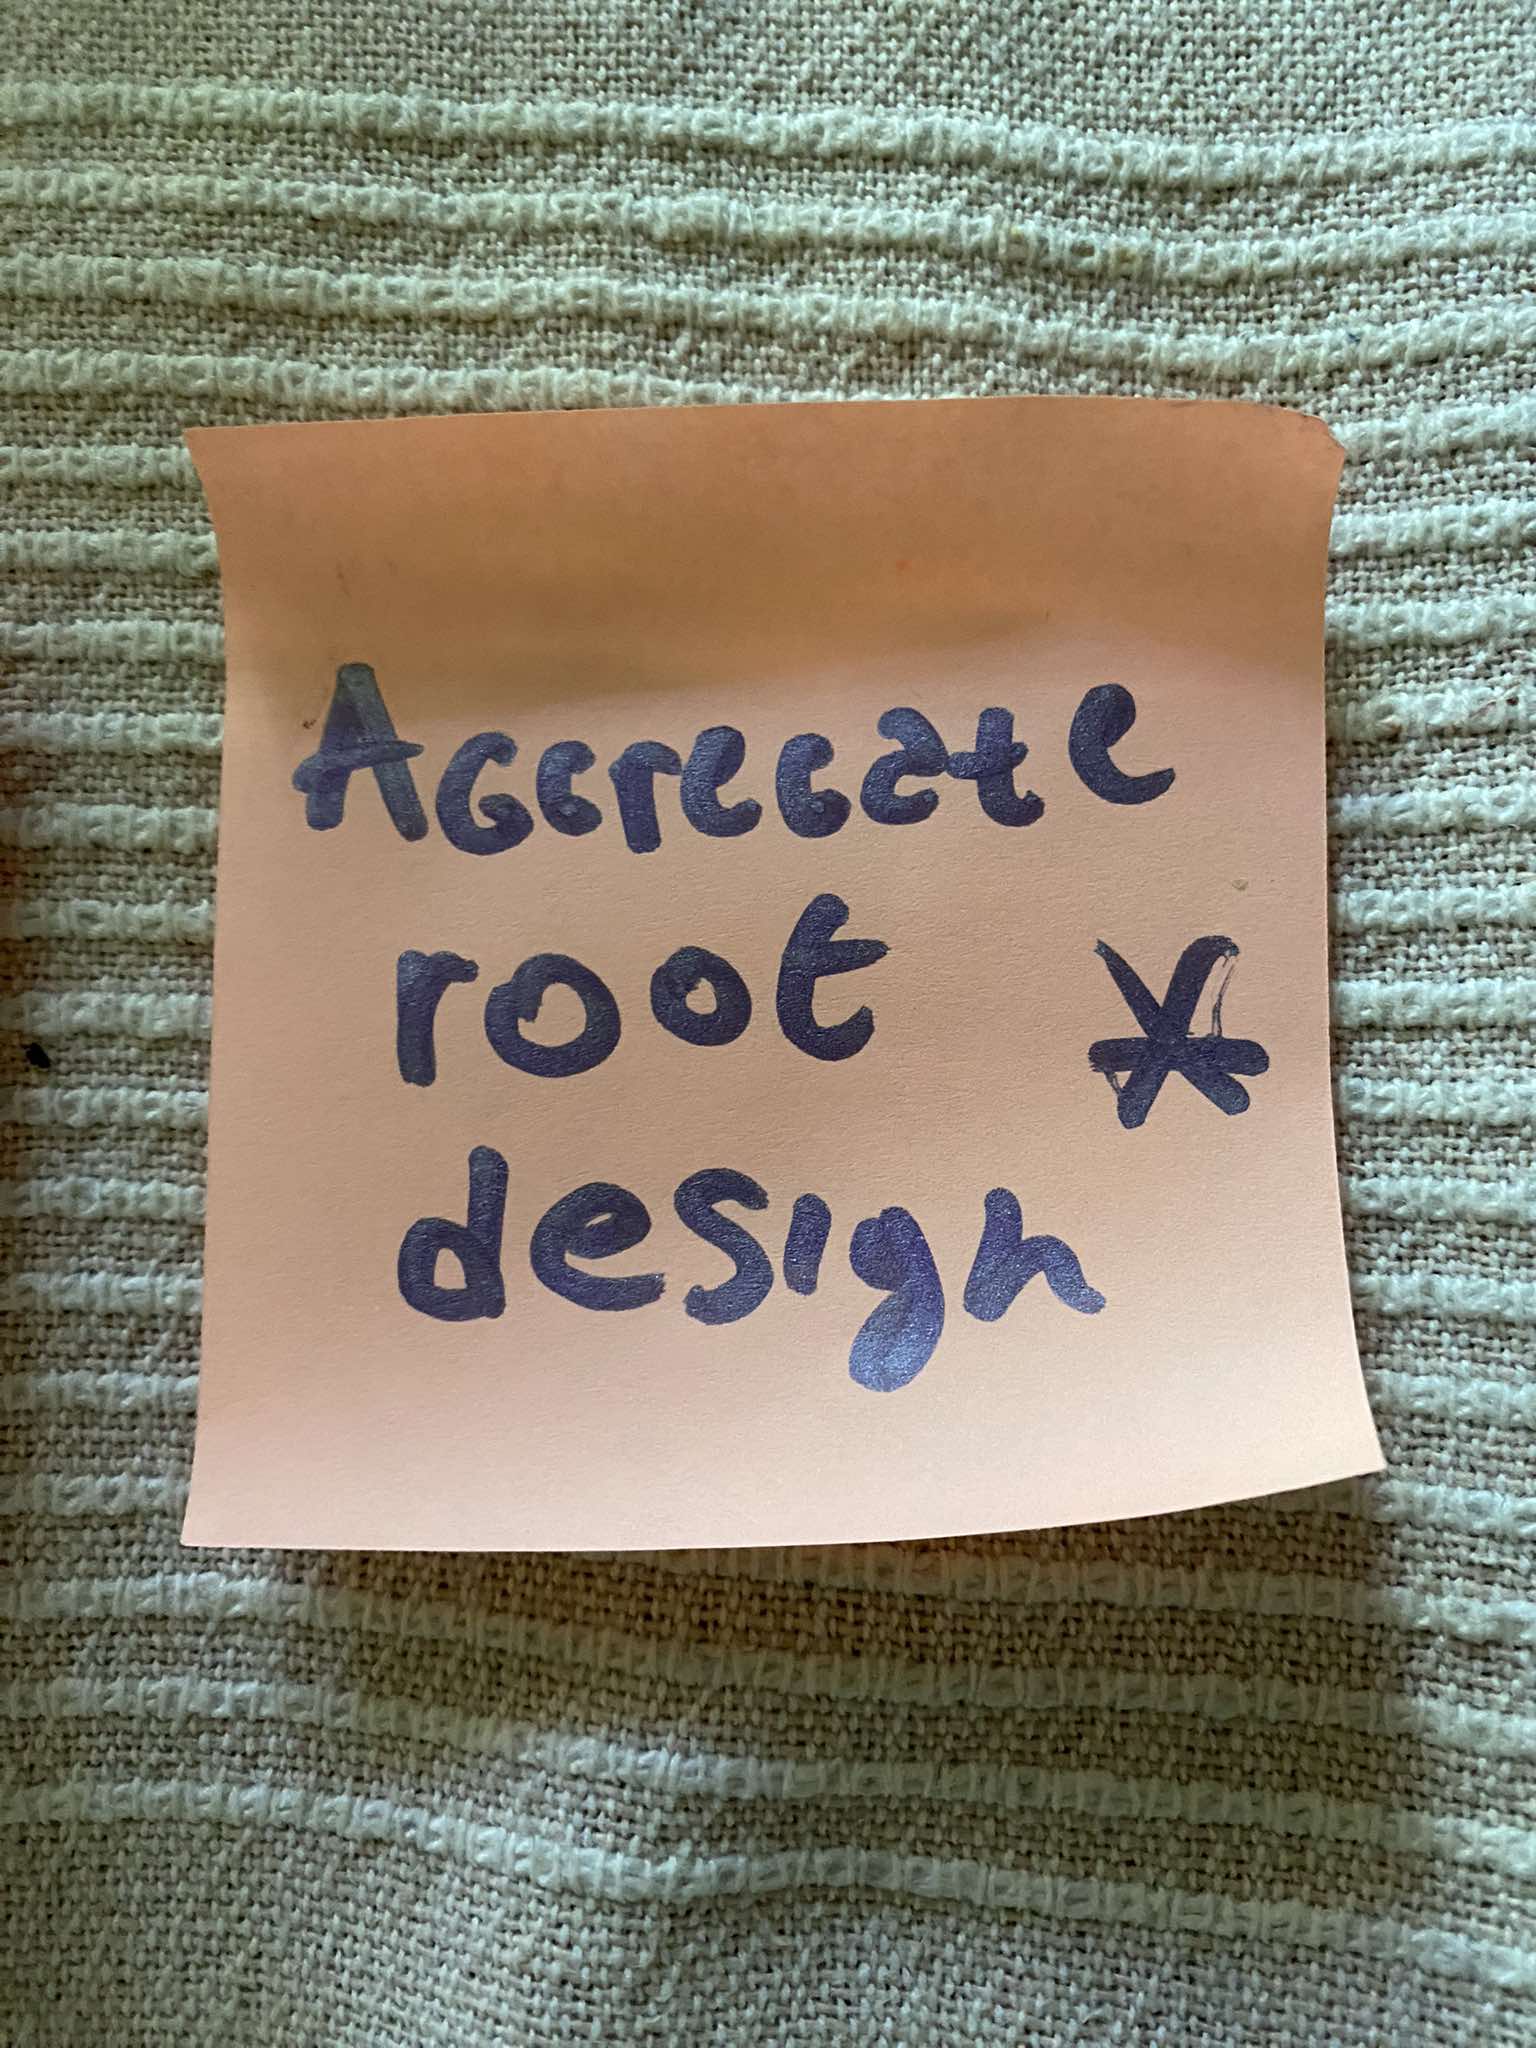 Aggregate
root *
design